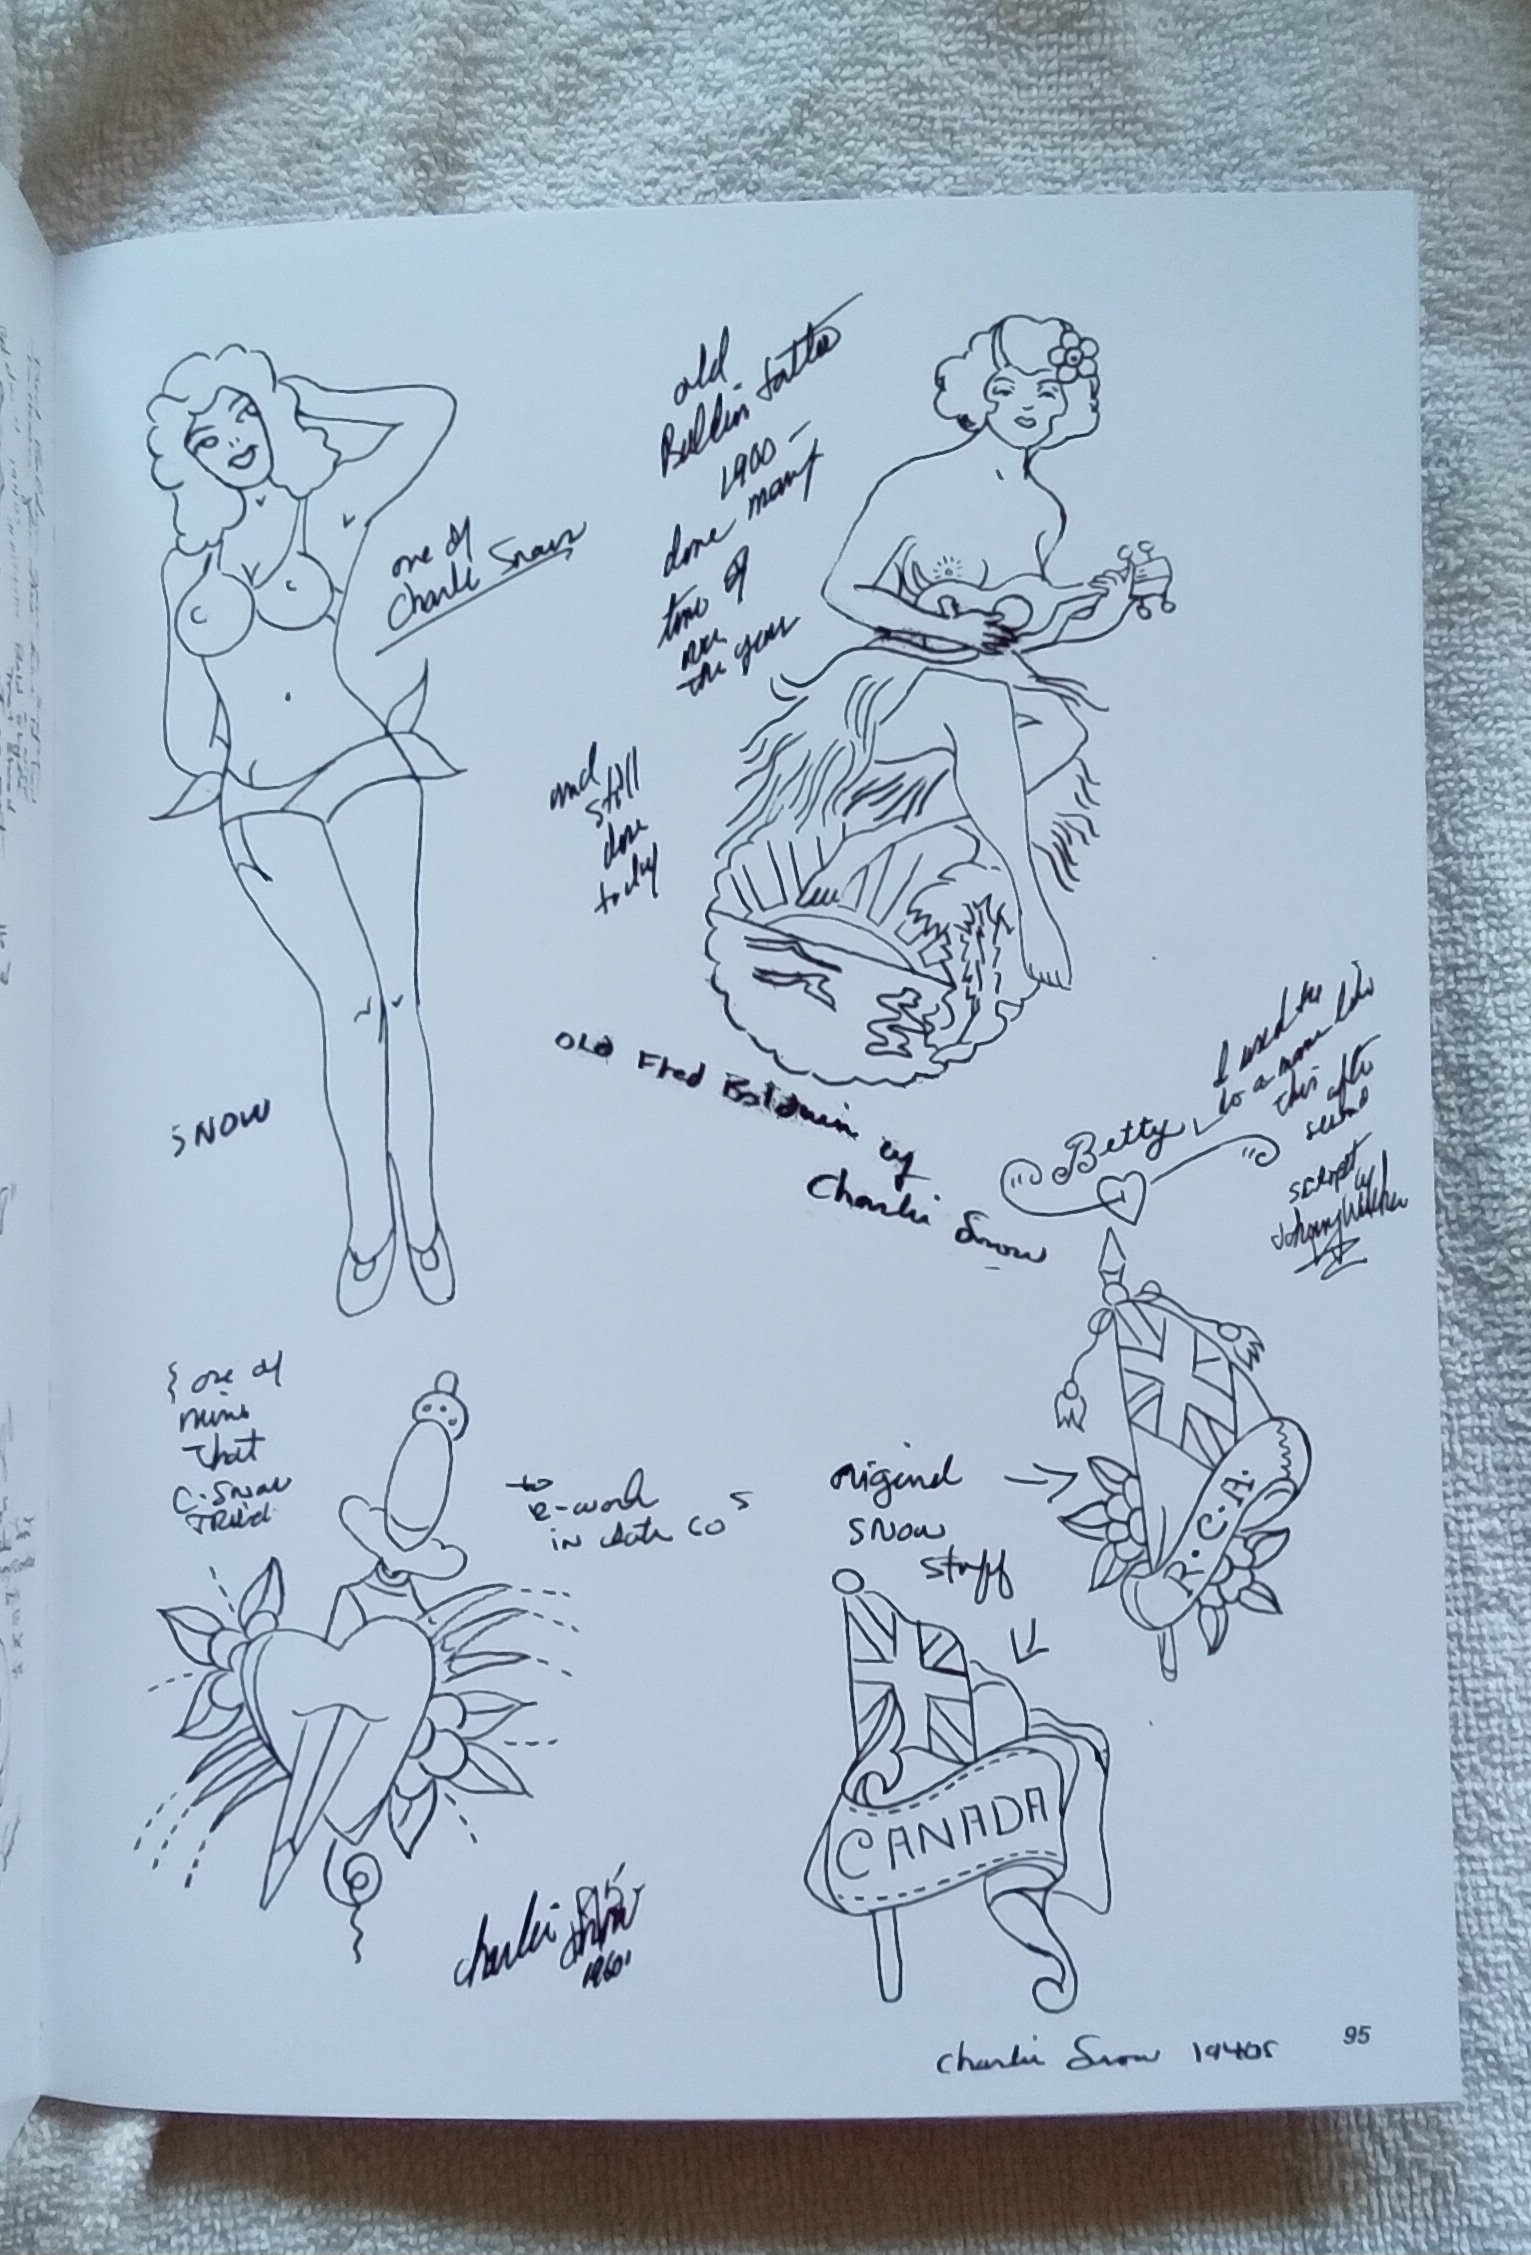 old
tattoo
1900 -
done many
time of
over
the years
one of
Charlie Snows
and
still
done
today
OLD Fred Baldwin by
Charlie Snow
SNOW
Betty
I used to
do a name like
this after
script
by
Johnny Walker
one of
mine
that
C. Snow
TRied
to
Re-work
in late 60s
original
SNOW
stuff
R.C.A.
CANADA
Charlie Snow
1960s
Charlie Snow 1940s
95